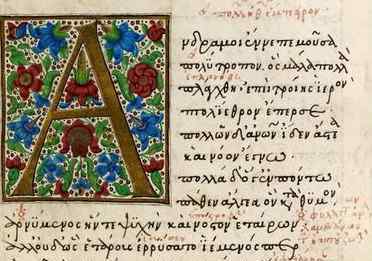 Ἄνδρα μοι ἔννεπε μοῦσα
πολύτροπον. ὃς μάλα πολλὰ
πλάγχθη ἐπεὶ τροίης ἱερὸν
πτολίεθρον ἔπερσε
πολλῶν δ' ἀνῶν ἴδεν ἄστεα
καὶ νόον ἔγνω
πολλὰ δ' ὅγ' ἐν πόντω
πάθεν ἄλγεα ὃν κατὰ θυμόν
ἀρνύμενος ἥν τε ψυχὴν καὶ νόστον ἑταίρων
ἀλλ' οὐδ' ὣς ἑτάρους ἐρρύσατο ἱέμενός περ